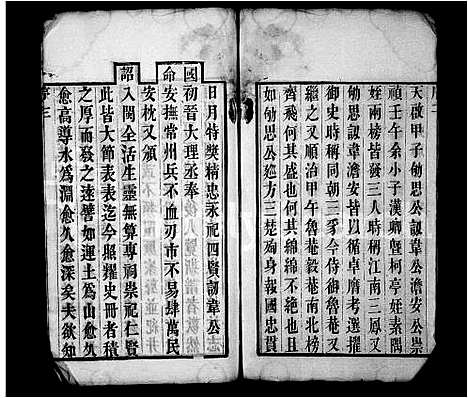 序二
天啟甲子劬思公訒韋公澹安公崇
禎壬午余小子漢卿暨柯亭姪素隅
姪兩榜皆發三人時稱江南三鳳又
劬思訒韋澹安皆以循卓膺考選擢
御史時稱同朝三豸今侍御魯菴公
繼之又順治甲午魯菴毅菴南北榜
齊飛何其盛也何其綿綿不絶也且
如劬思公廵方三楚殉身報國忠貫
日月特奬精忠永祀四賢訒韋公
國初晉大理奉
命安撫常州兵不血刃市不易肆萬民
安枕又頒
詔入閩全活生靈無算專祠崇祀仁賢
此皆大節表表迄今照耀史冊者積
之厚而發之遠譬如運土為山愈久
愈高導水為淵愈久愈深矣夫欲知
序三